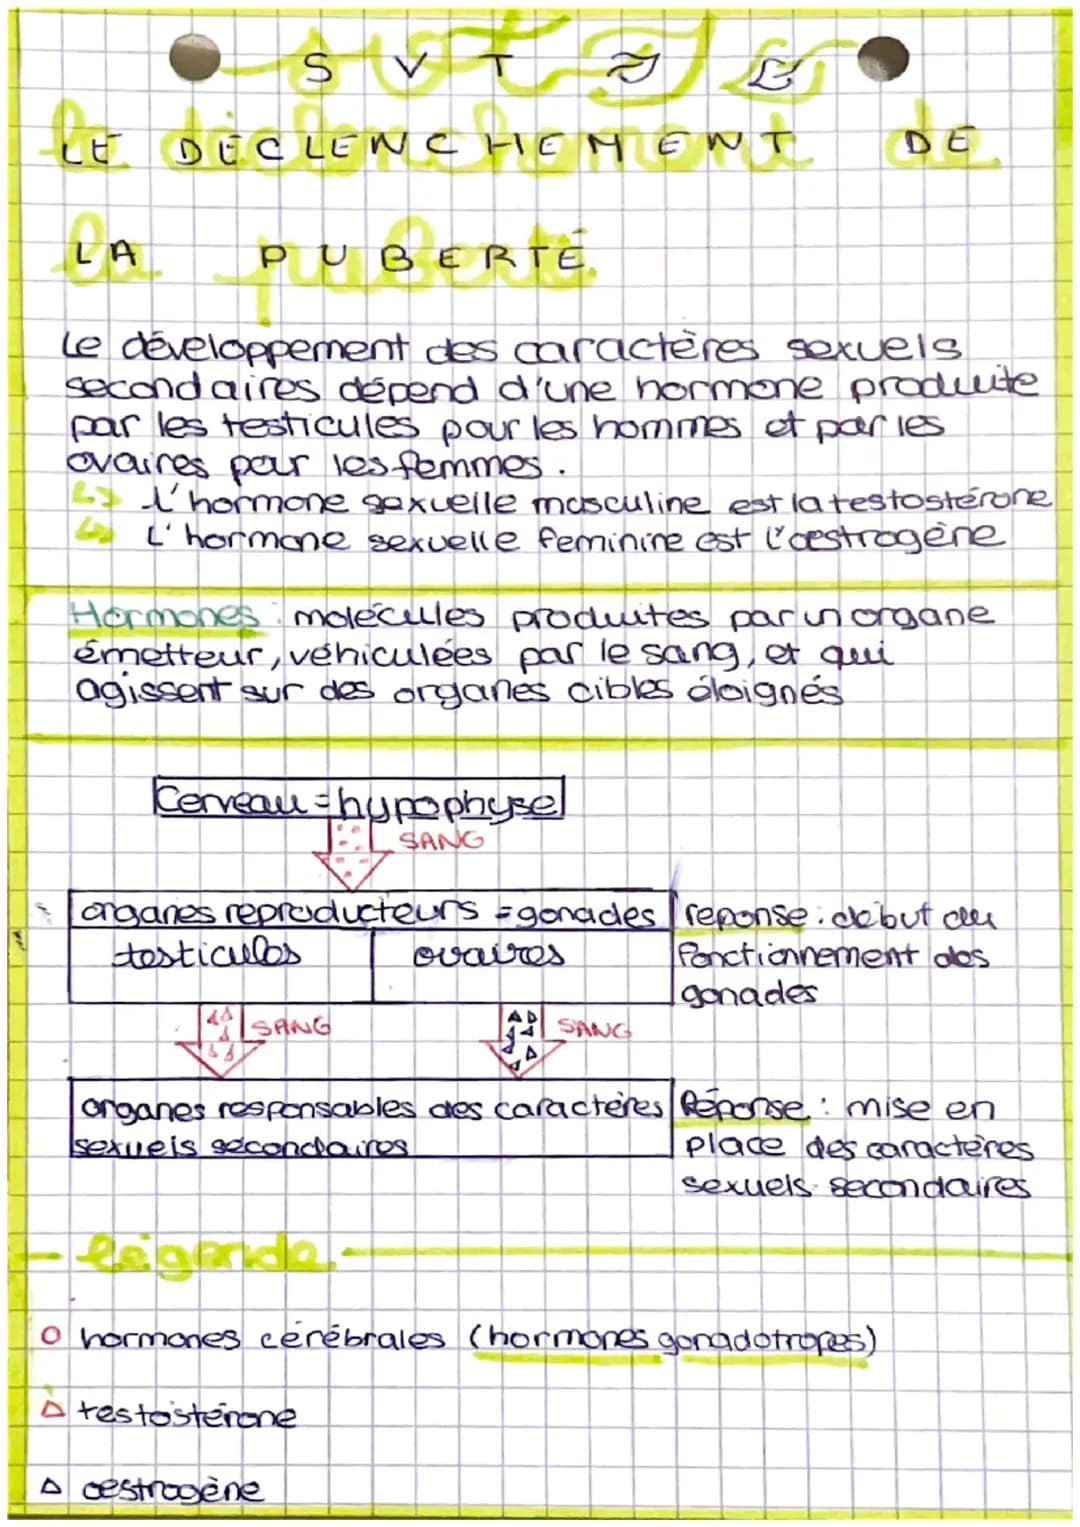 SVT
LE DÉCLENCHEMENT DE
LA PUBERTÉ
Le développement des caractères sexuels
secondaires dépend d'une hormone produite
par les testicules pour les hommes et par les
ovaires par les femmes.
↳ L'hormone sexuelle masculine est la testostérone
↳ L'hormone sexuelle feminine est l'œstrogène
Hormones : molécules produites par un organe
émetteur, véhiculées par le sang, et qui
agissent sur des organes cibles éloignés
Cerveau = hypophyse
SANG
organes reproducteurs = gonades
testicules ovaires
reponse : début du
fonctionnement des
gonades
SANG SANG
organes responsables des caractères
sexuels secondaires
Réponse : mise en
place des caractères
sexuels secondaires
légende
O hormones cérébrales (hormones gonadotropes)
Δ testostérone
Δ œstrogène